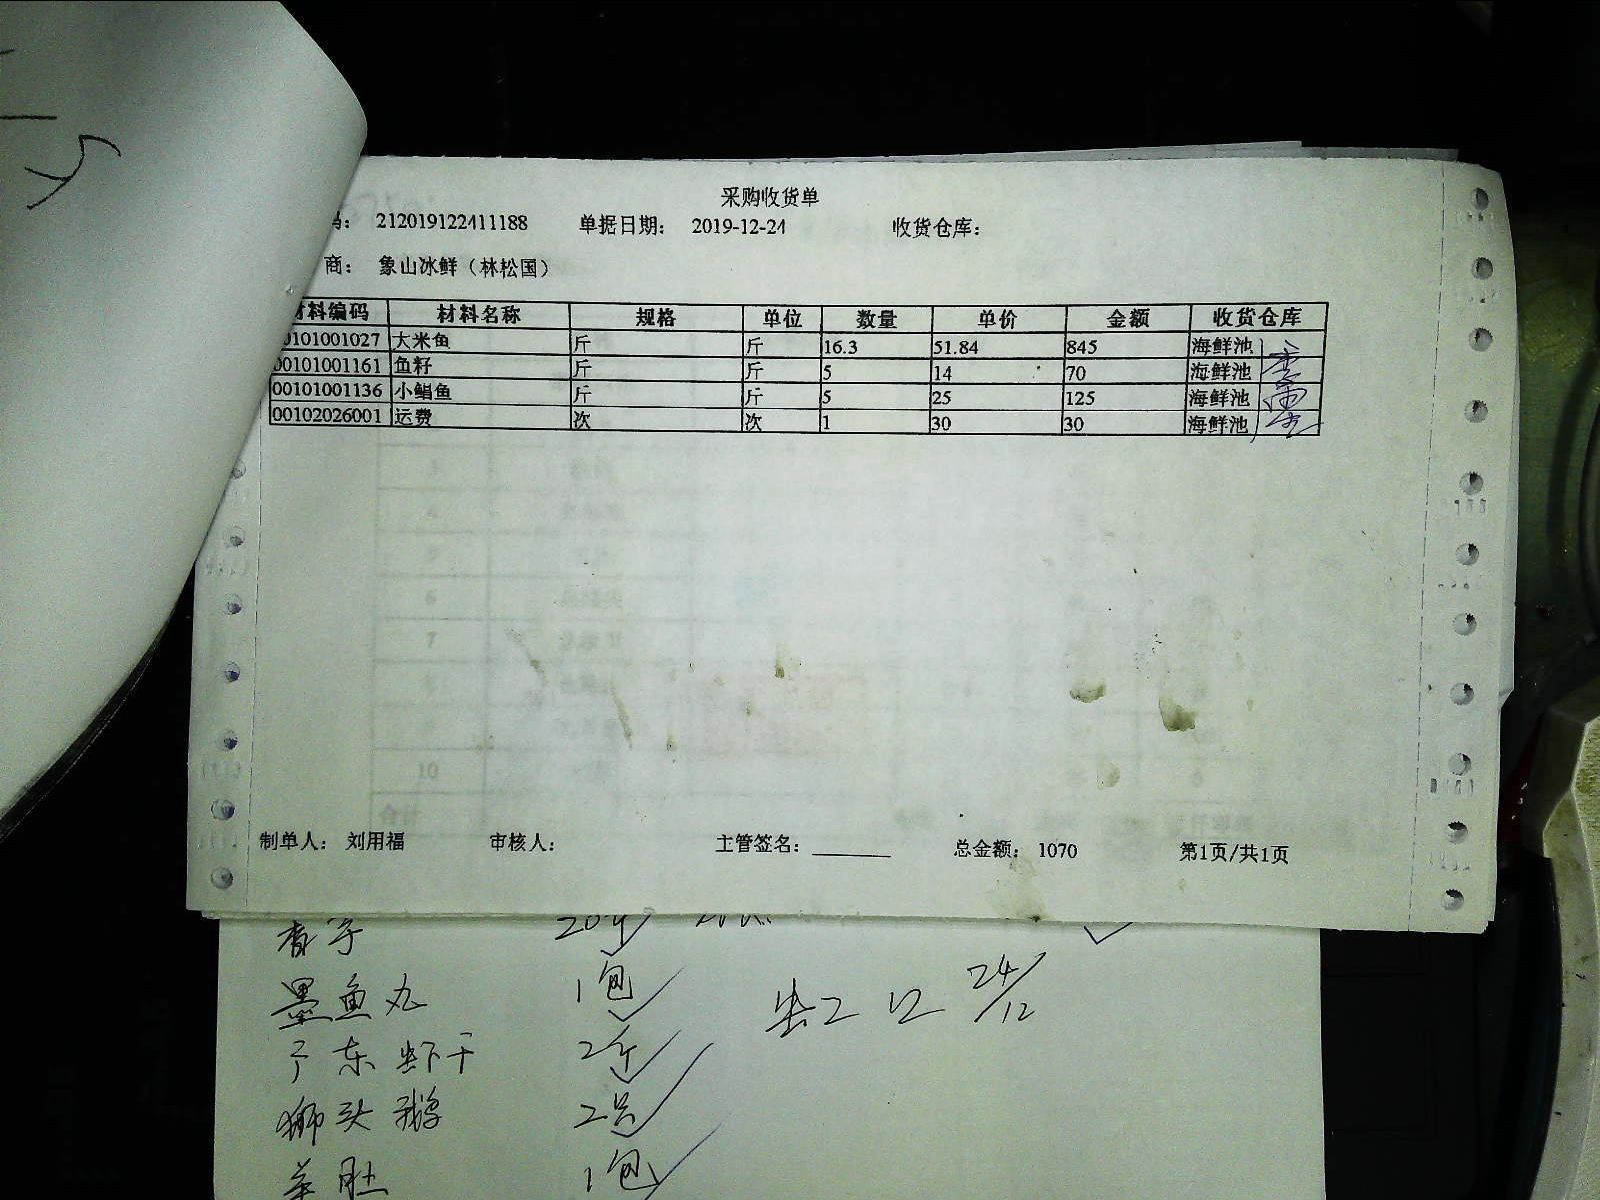 采购收货单
码： 212019122411188 单据日期： 2019-12-24 收货仓库：
商： 象山冰鲜（林松国）
材料编码 材料名称 规格 单位 数量 单价 金额 收货仓库
00101001027 大米鱼 斤 斤 16.3 51.84 845 海鲜池
00101001161 鱼籽 斤 斤 5 14 70 海鲜池
00101001136 小鲳鱼 斤 斤 5 25 125 海鲜池
00102026001 运费 次 次 1 30 30 海鲜池
制单人： 刘用福 审核人： 主管签名： 总金额： 1070 第1页/共1页
墨鱼丸 1包 24/12
广东虾干 2斤
狮头鹅 2只
1包